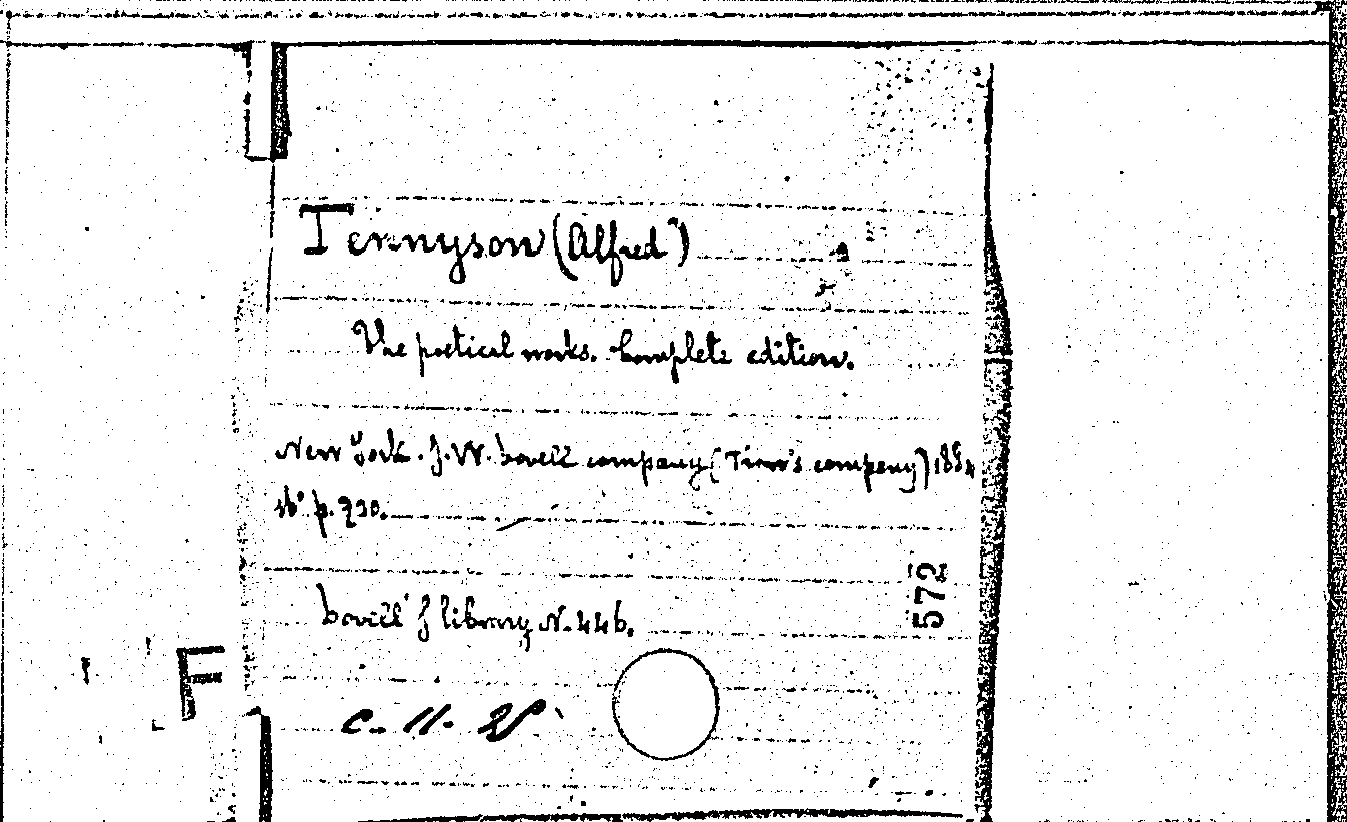 Tennyson (Alfred)
The poetical works. Complete edition.
New York. J. W. Lovell company (Trow's company) 1884
16° p. 930.
Lovell's library N. 446.
572
F
C. 11. 28